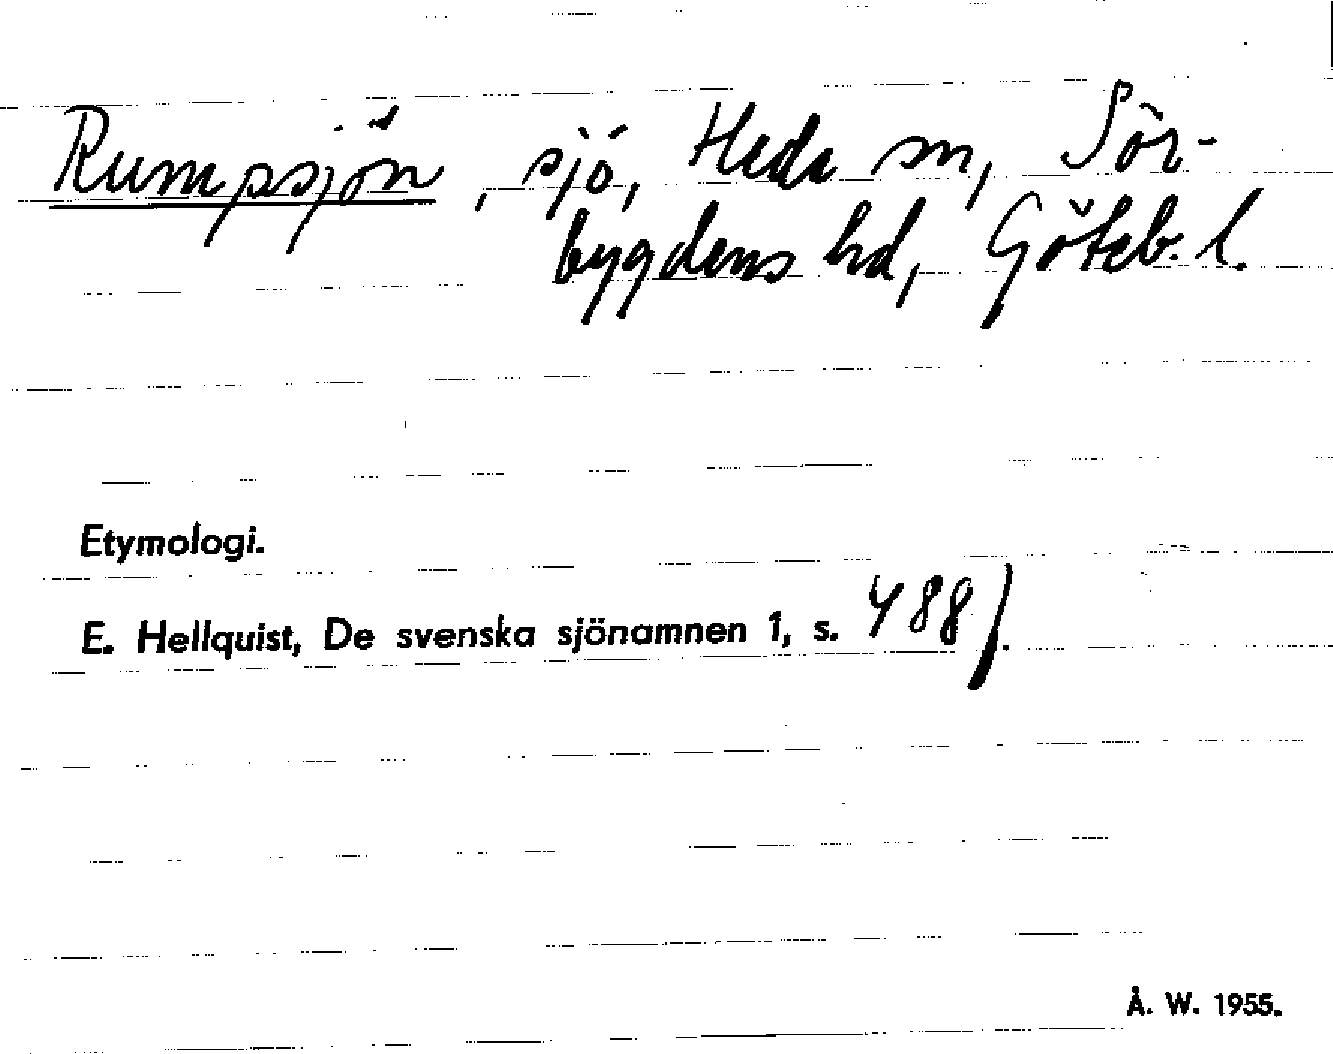 Rumpsjön, sjö, Hede sn, Sör-
bygdens hd, Göteb. l.
Etymologi.
E. Hellquist, De svenska sjönamnen 1, s. 488 f.
Å. W. 1955.